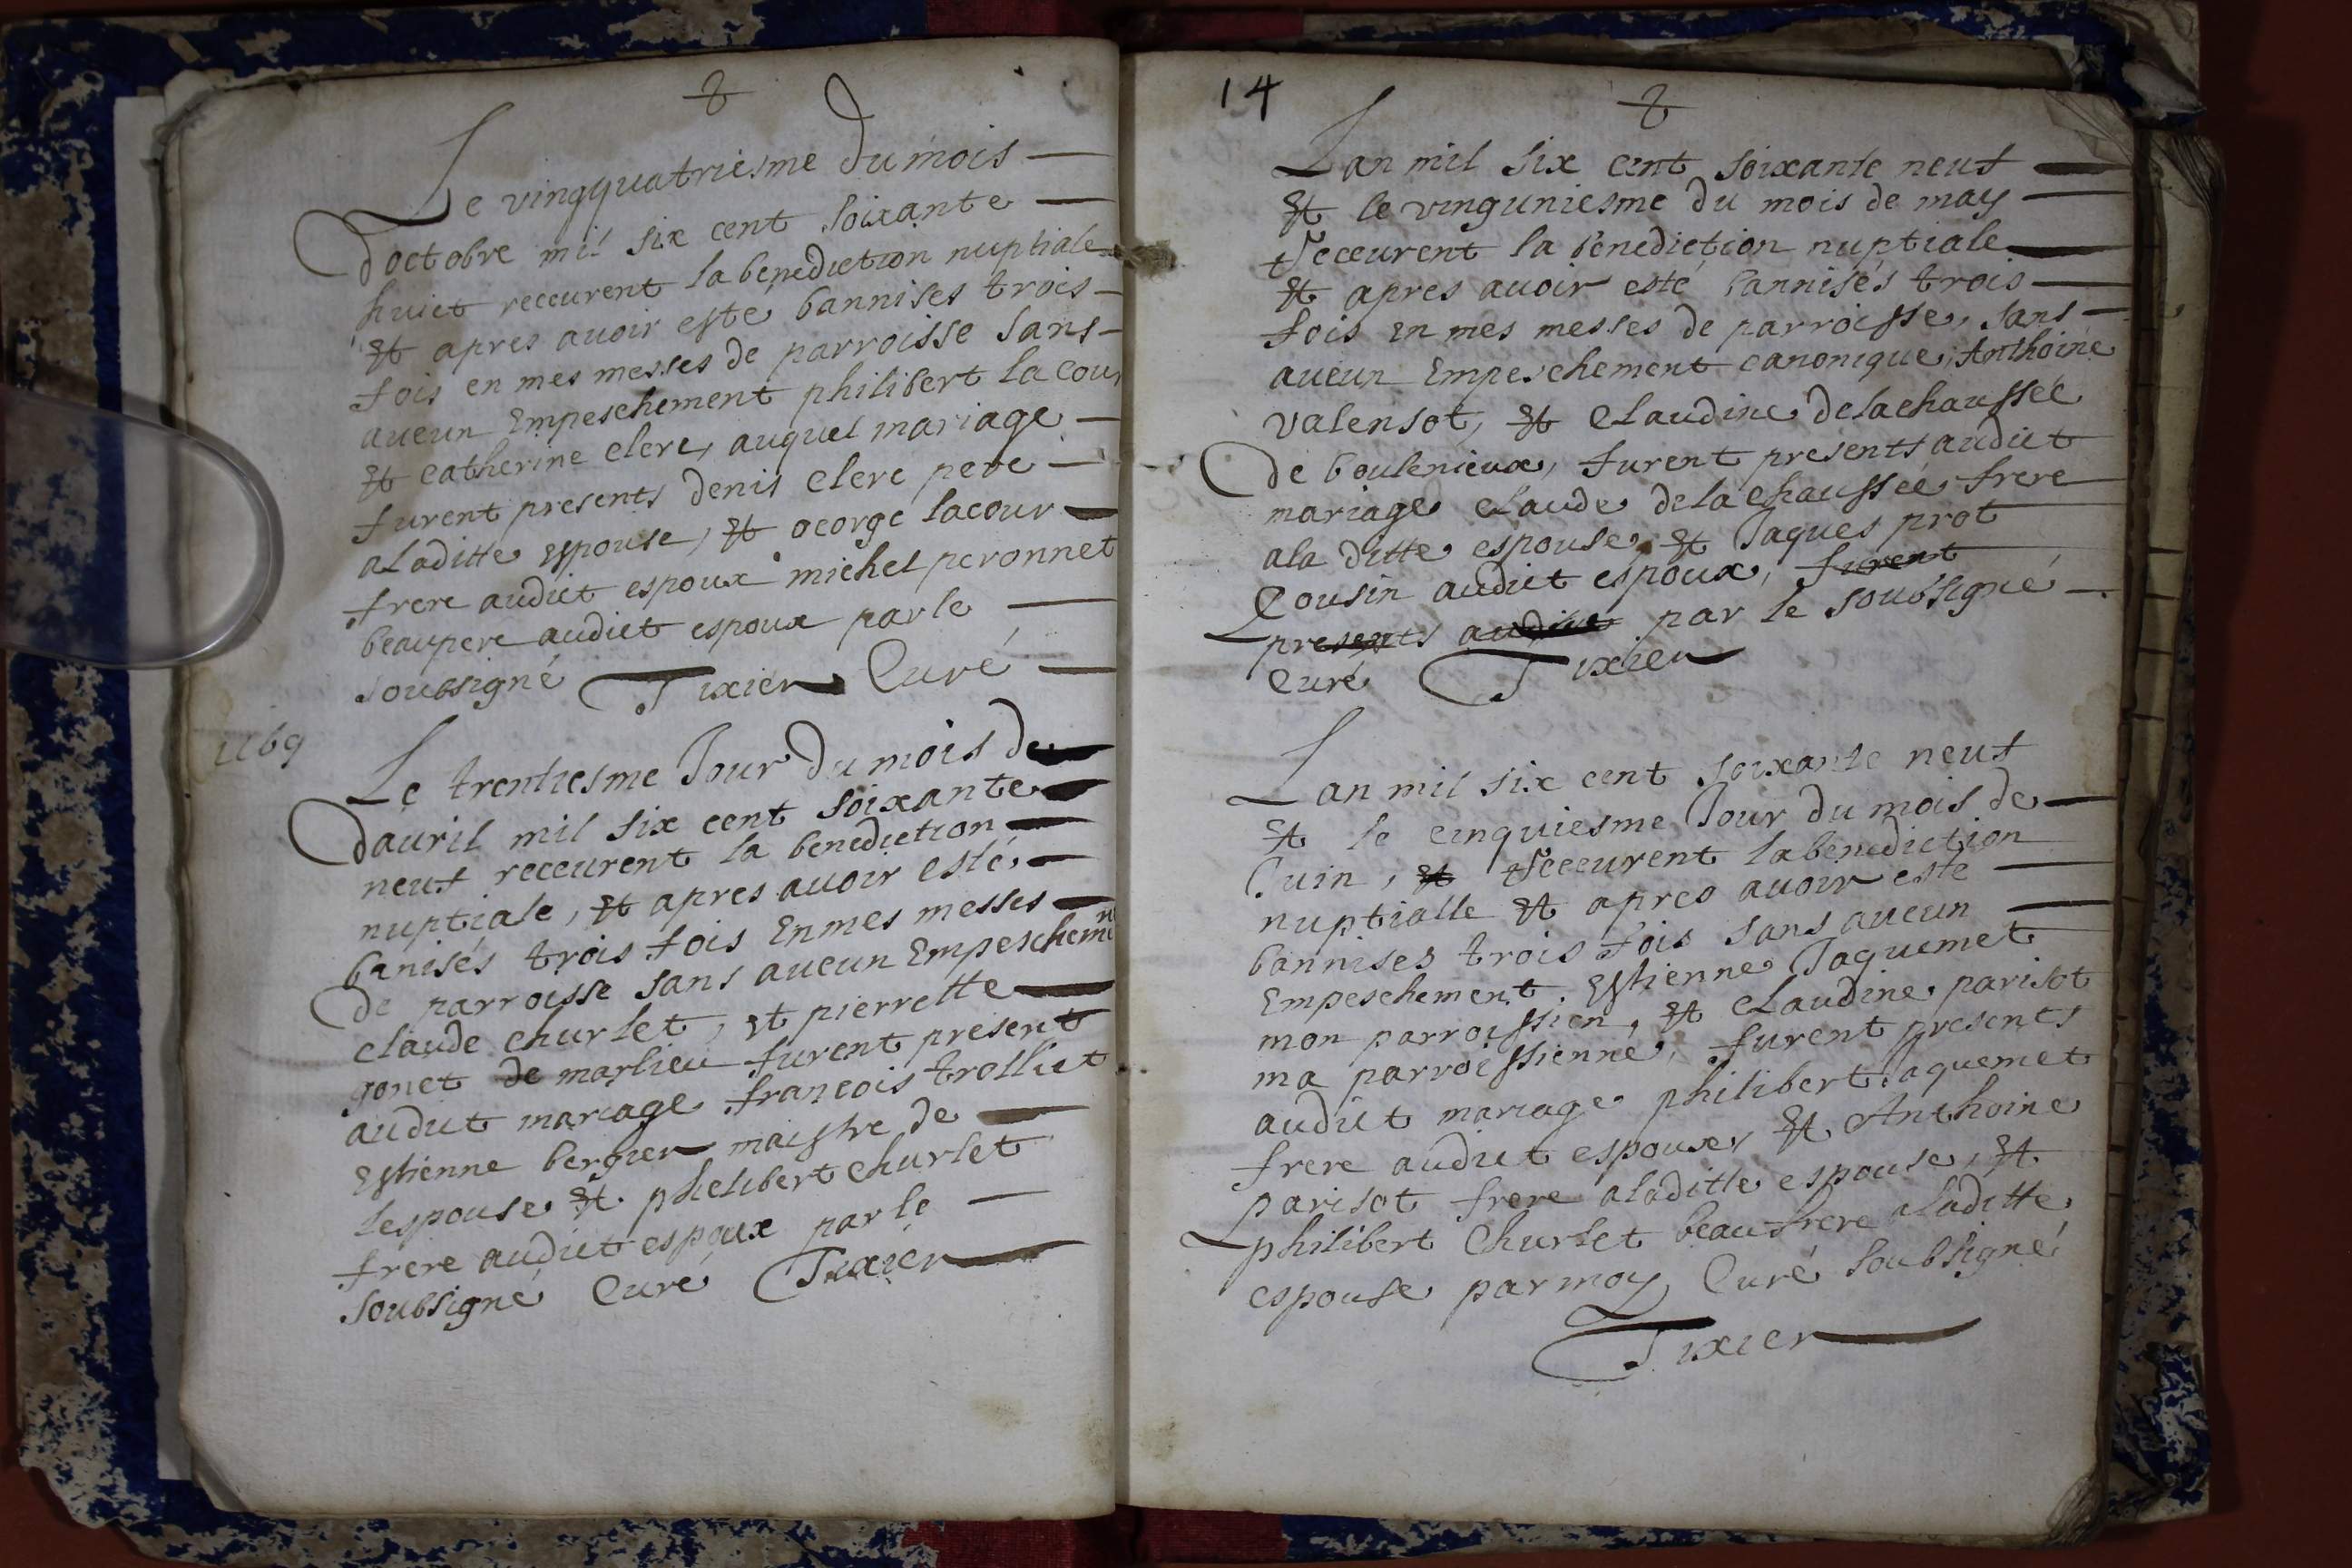 Le vingquatriesme du mois
doctobre mil six cent soixante
huict receurent la benediction nuptiale
Et apres avoir esté bannises trois
fois en mes messes de parroisse sans
aucun Empeschement philibert lacour
Et catherine clerc, auquel mariage
furent presents denis clerc pere
aladitte espouse, Et george lacour
frere audict espoux michel peronnet
beaupere audict espoux parle
soubsigné Tixier Curé
1669
Le trentiesme Jour du mois de
dauril mil six cent soixante
neuf receurent la benediction
nuptiale, Et apres auoir esté
banisés trois fois En mes messes
de parroisse sans aucun Empeschemt
claude churlet, et pierrette
gonet de marlieu furent present
audict mariage francois trolliet
Estienne bergier maistre de
lespouse Et phelibert churlet
frere audict espoux parle
soubsigné Curé Tixier
14
Lan mil six cent soixante neuf
Et le vinguniesme du mois de may
Receurent la benediction nuptiale
Et apres auoir esté bannisés trois
fois en mes messes de parroisse, sans
aucun Empeschement canonique, Anthoine
valensot, Et Claudine delachaussée
de boulenieux, furent presents audict
mariage claude delachaussée frere
ala ditte espouse Et Jaques prot
Cousin audict espoux, furent
presents audict par le soubsigné
Curé Tixier
Lan mil six cent soixante neuf
Et le cinquiesme Jour du mois de
Juin, Et Receurent labenediction
nuptialle Et apres auoir esté
bannises trois fois sans aucun
Empeschement. Estienne Jaquemet
mon parroissien, Et claudine parisot
ma parroissienne, furent presents
audict mariage philibert Jaquemet
frere audict espoux, Et Anthoine
parisot frere aladitte espouse, Et
philibert Churlet beaufrere aladitte
espouse par moy Curé soubsigné
Tixier